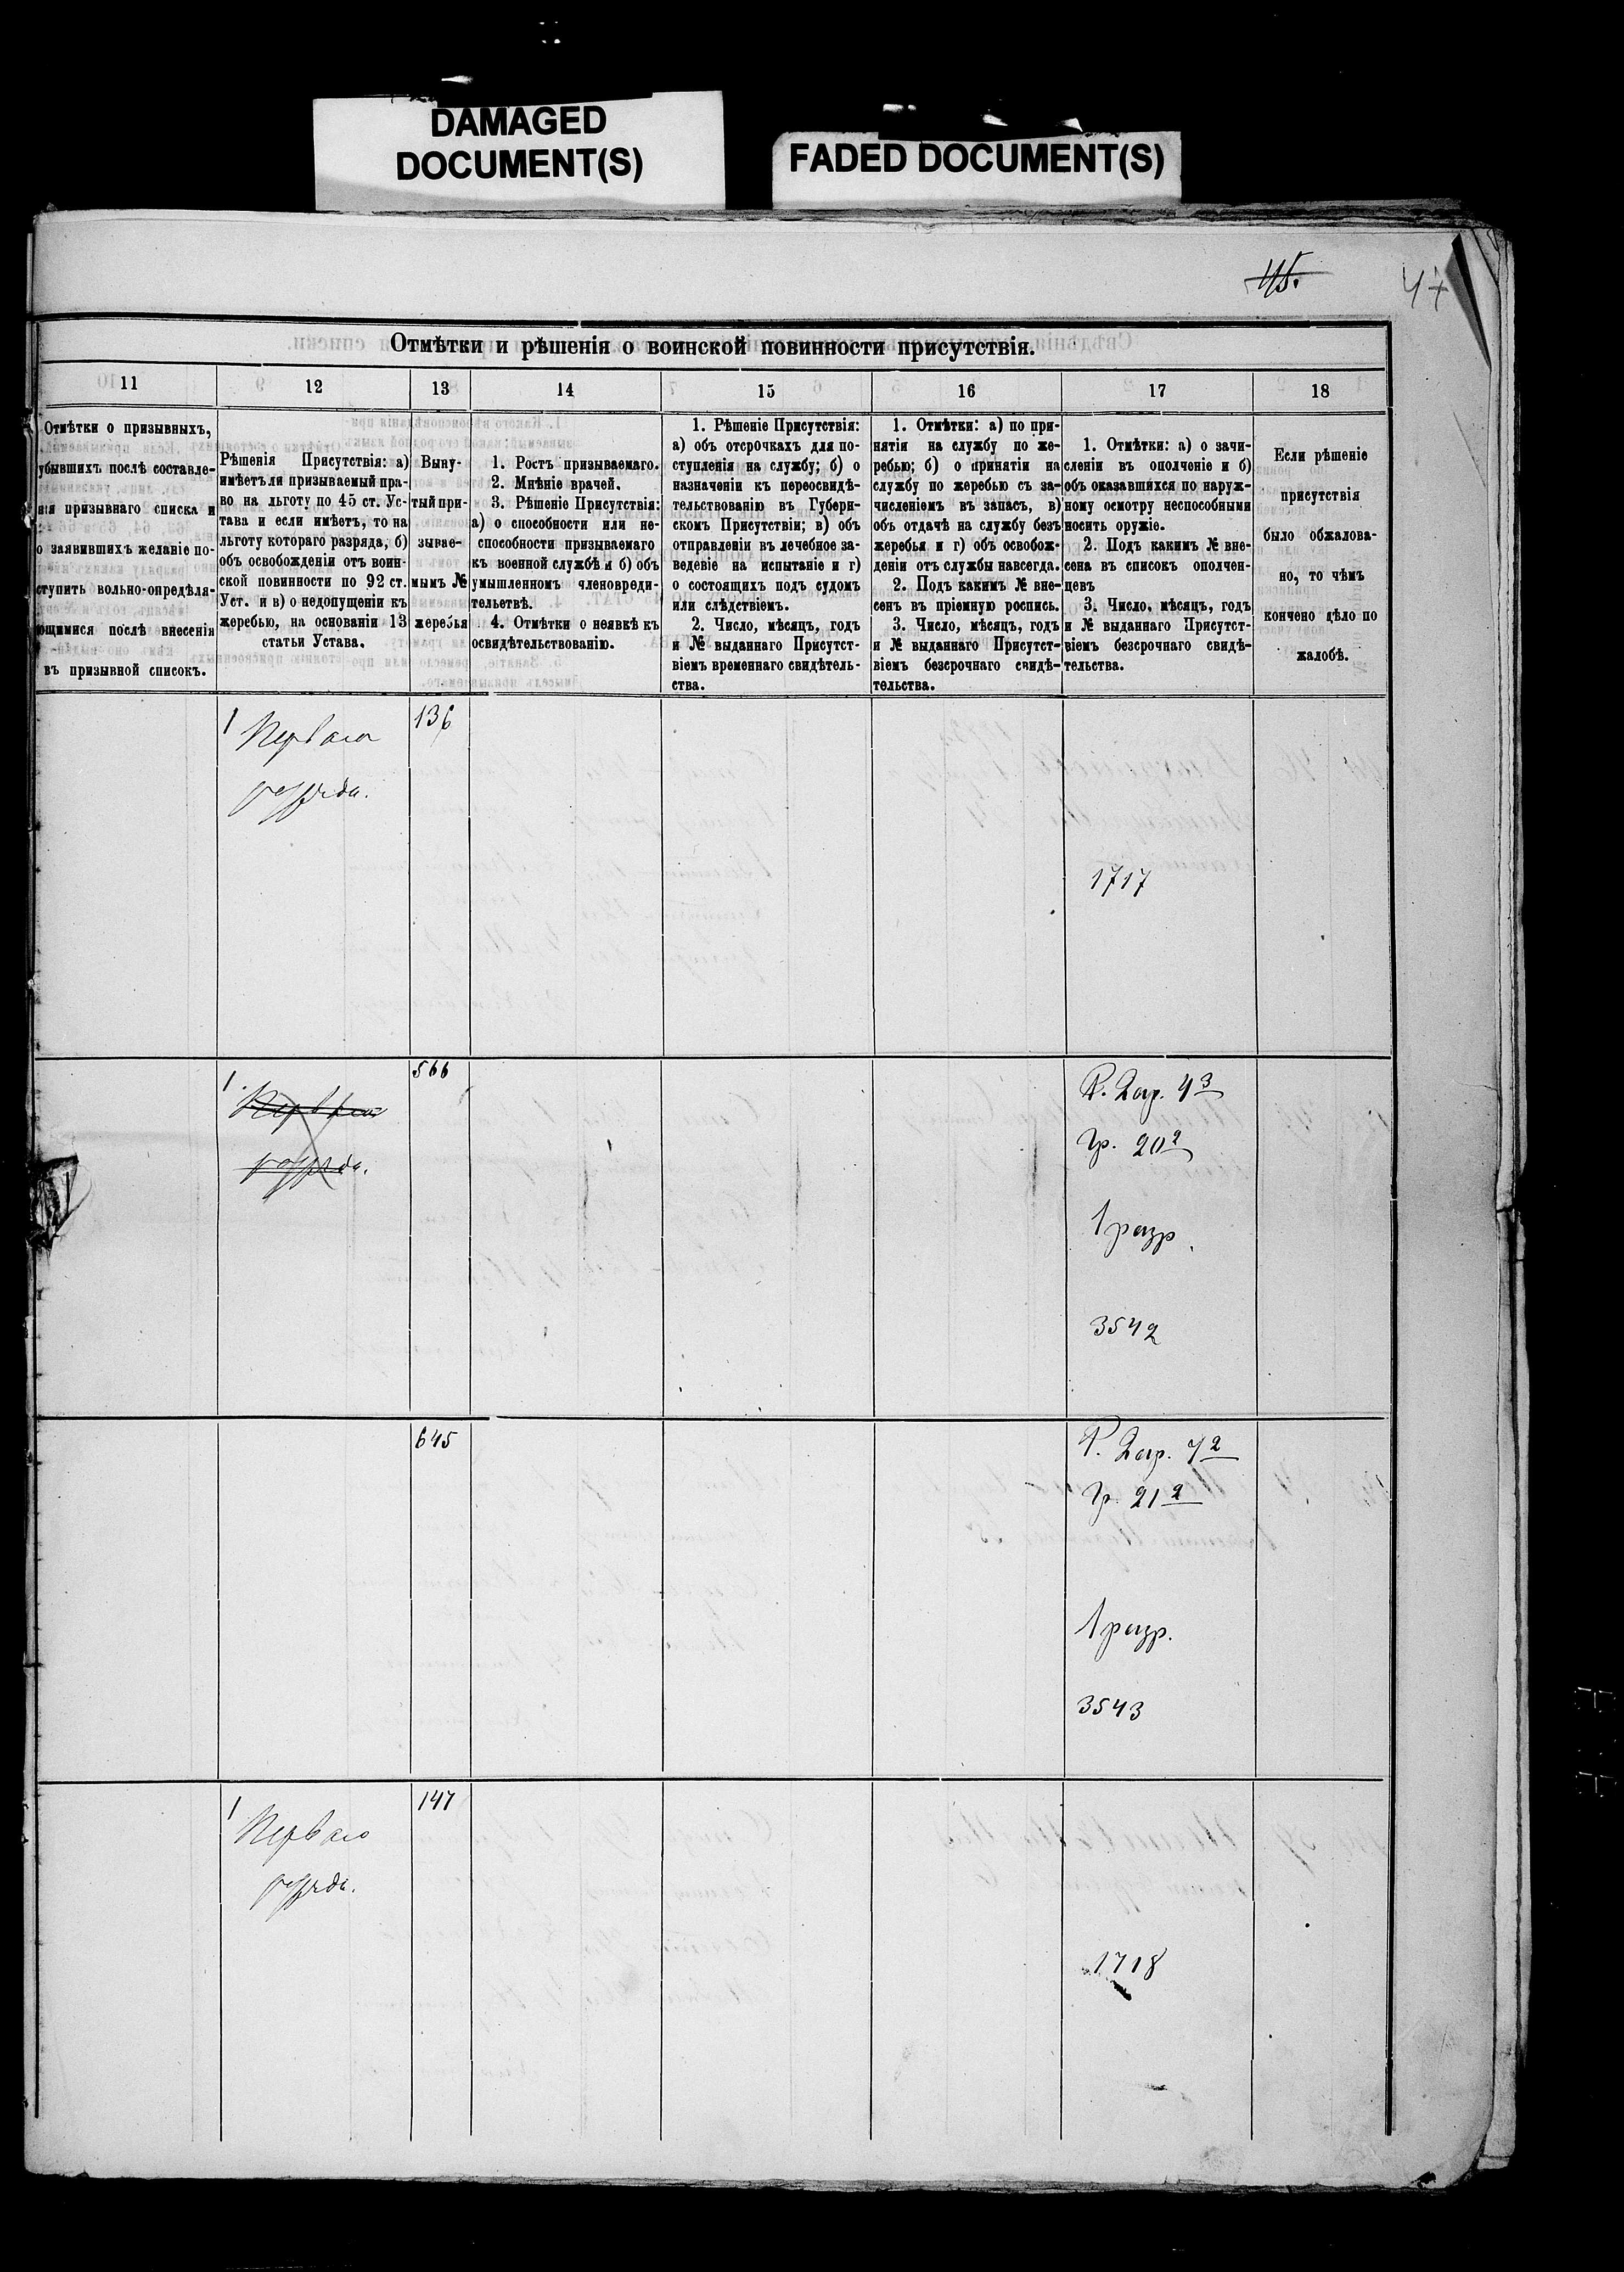 DAMAGED
DOCUMENT(S)
FADED DOCUMENT(S)
45.
47
Отмѣтки и рѣшенія о воинской повинности присутствія.
11
12
13
14
15
16
17
18
Отмѣтки о призывныхъ,
убывшихъ послѣ составле-
нія призывнаго списка и
о заявившихъ желаніе по-
ступить вольно-опредѣля-
ющимися послѣ внесенія
въ призывной списокъ.
Рѣшенія Присутствія: а)
имѣетъ ли призываемый пра-
во на льготу по 45 ст. Ус-
тава и если имѣетъ, то на
льготу котораго разряда, б)
объ освобожденіи отъ воин-
ской повинности по 92 ст.
Уст. и в) о недопущеніи къ
жеребью, на основаніи 13
статьи Устава.
Выну-
тый при-
зывае-
мымъ №
жеребья
1. Ростъ призываемаго.
2. Мнѣніе врачей.
3. Рѣшеніе Присутствія:
а) о способности или не-
способности призываемаго
къ военной службѣ и б) объ
умышленномъ членовреди-
тельствѣ.
4. Отмѣтки о неявкѣ къ
освидѣтельствованію.
1. Рѣшеніе Присутствія:
а) объ отсрочкахъ для по-
ступленія на службу; б) о
назначеніи къ переосвидѣ-
тельствованію въ Губерн-
скомъ Присутствіи; в) объ
отправленіи въ лечебное за-
веденіе на испытаніе и г)
о состоящихъ подъ судомъ
или слѣдствіемъ.
2. Число, мѣсяцъ, годъ
и № выданнаго Присутст-
віемъ временнаго свидѣтель-
ства.
1. Отмѣтки: а) по при-
нятіи на службу по же-
ребью; б) о принятіи на
службу по жеребью съ за-
численіемъ въ запасъ, в)
объ отдачѣ на службу безъ
жеребья и г) объ освобож-
деніи отъ службы навсегда.
2. Подъ какимъ № вне-
сенъ въ пріемную роспись.
3. Число, мѣсяцъ, годъ
и № выданнаго Присутст-
віемъ безсрочнаго свидѣ-
тельства.
1. Отмѣтки: а) о зачи-
сленіи въ ополченіе и б)
объ оказавшихся по наруж-
ному осмотру неспособными
носить оружіе.
2. Подъ какимъ № вне-
сена въ списокъ ополчен-
цевъ
3. Число, мѣсяцъ, годъ
и № выданнаго Присутст-
віемъ безсрочнаго свидѣ-
тельства.
Если рѣшеніе
присутствія
было обжалова-
но, то чѣмъ
кончено дѣло по
жалобѣ.
1 Перваго
разряда.
136
1717
1. Перваго
разряда.
566
гр. 20 2
1 разр.
3542
645
гр. 21 2
1 разр.
3543
1 Перваго
разряда.
147
1718